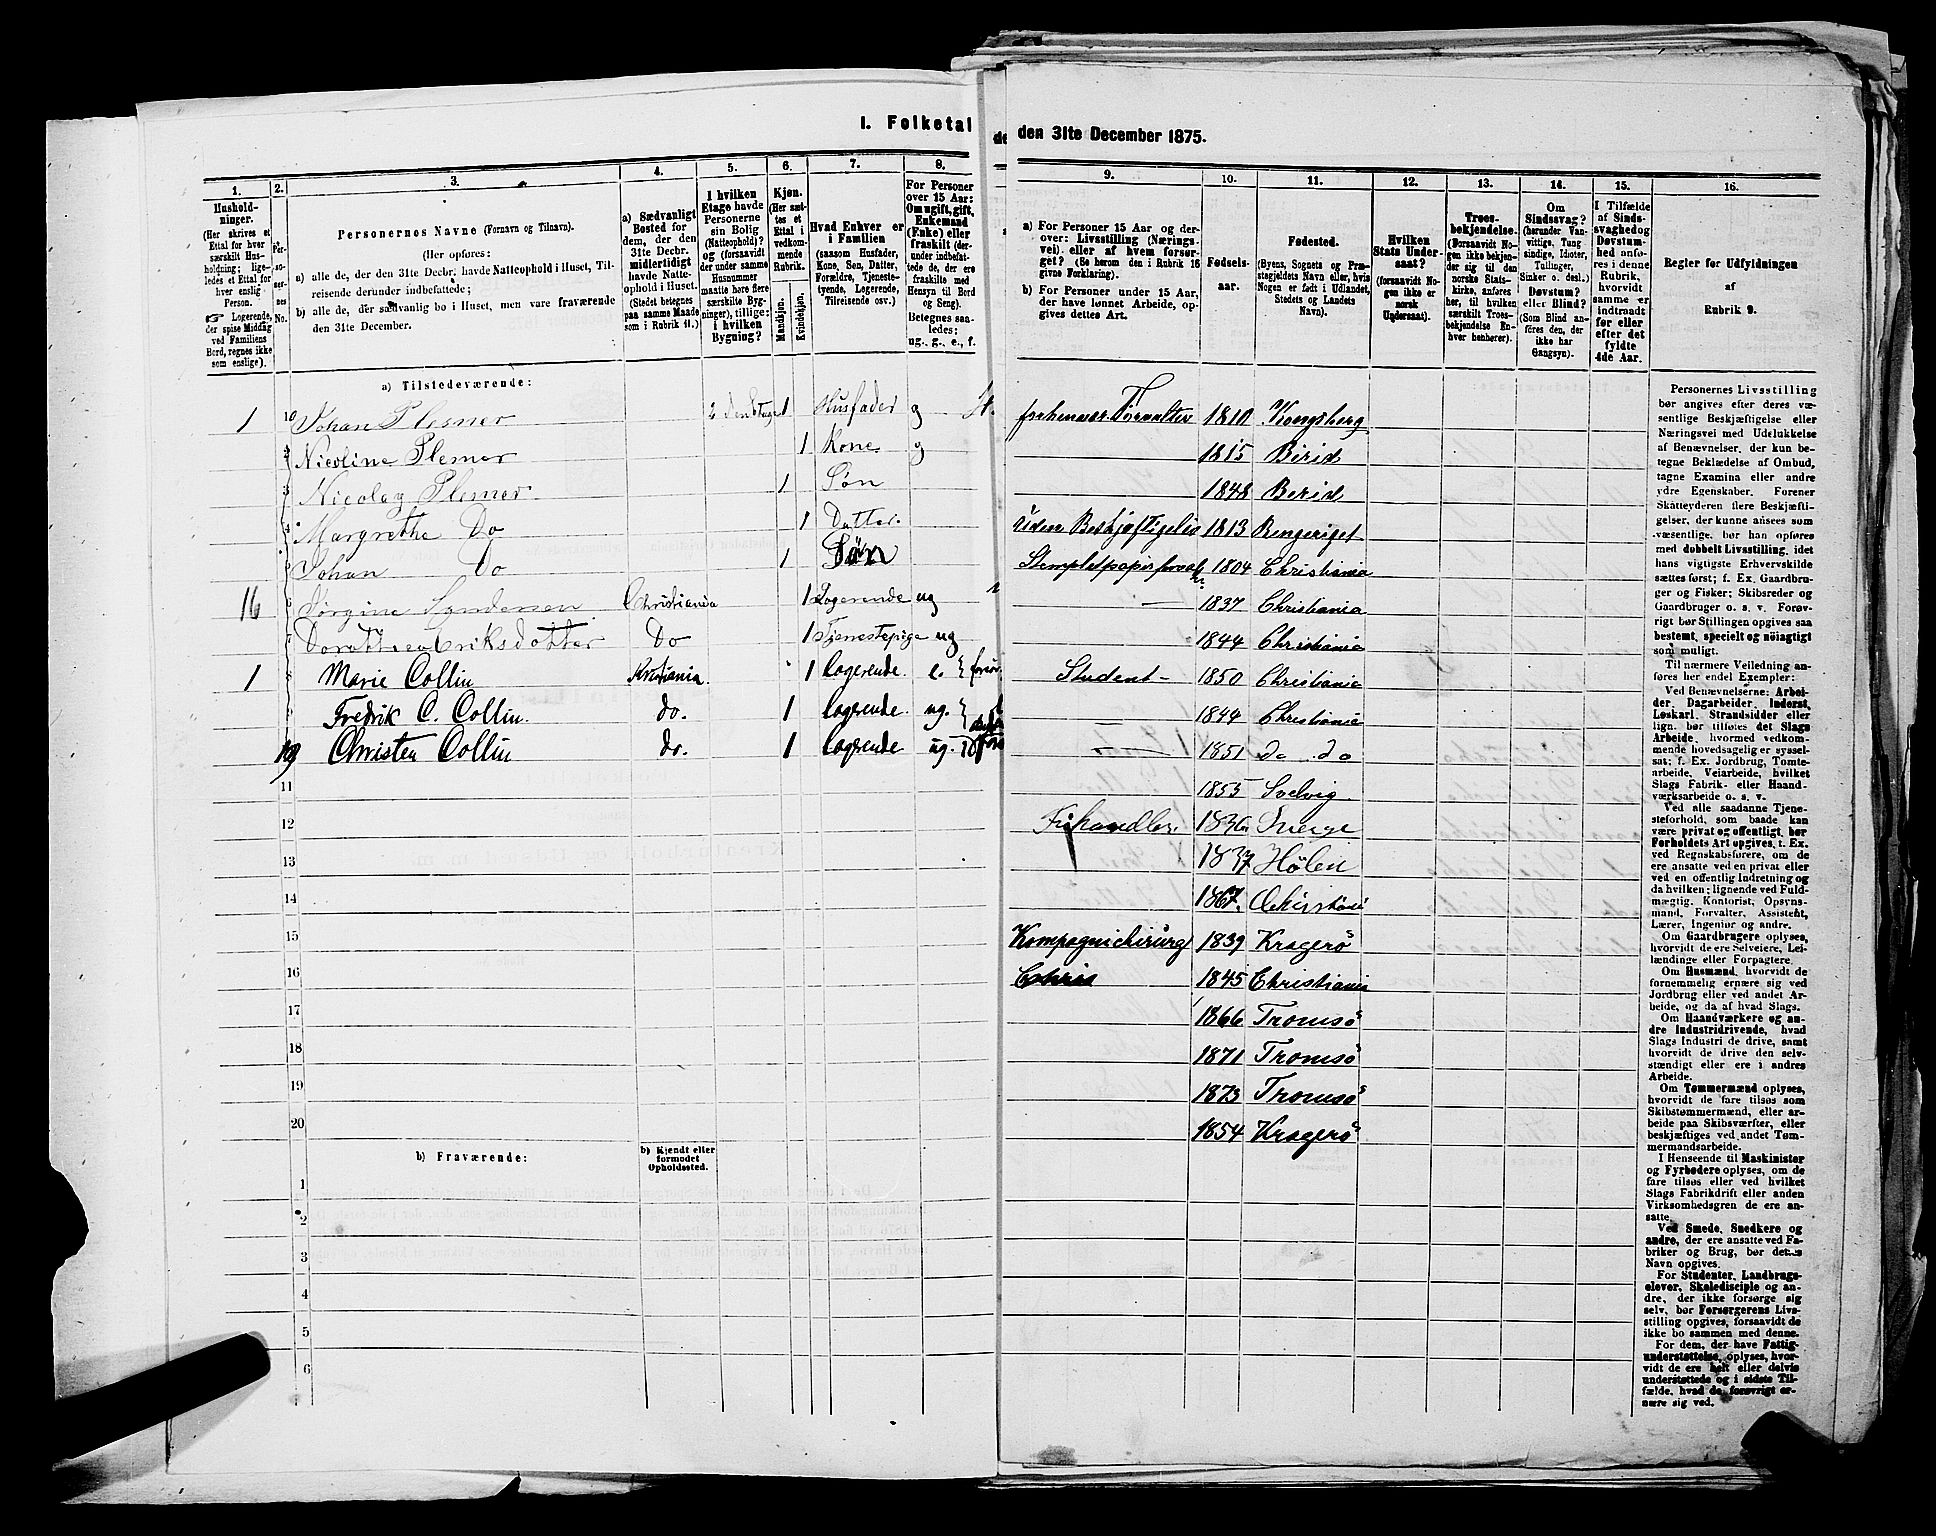 I. Folketal
de
den 31te December 1875.
1.
2.
3.
4.
5.
6.
7.
8.
Hushold-
ninger.
(Her skrives et
Ettal for hver
særskilt Hus-
holdning; lige-
ledes et Ettal for
hver enslig
Person.
☞ Logerende,
der spise Middag
ved Familiens
Bord, regnes ikke
som enslige).
Per-
so-
ner-
nes
No.
Personernes Navne (Fornavn og Tilnavn).
(Her opføres:
a) alle de, der den 31te Decbr. havde Natteophold i Huset, Til-
reisende derunder indbefattede;
b) alle de, der sædvanlig bo i Huset, men vare fraværende
den 31te December.
a) Sædvanligt
Bosted for
dem, der den
31te Decbr.
midlertidigt
havde Natte-
ophold i Huset.
(Stedet betegnes
paa samme Maade
som i Rubrik 11.)
I hvilken
Etage havde
Personerne
sin Bolig
(Natteophold)?
og (forsaavidt
der under samme
Husnummer
maatte høre flere
særskilte Byg-
ninger), tillige:
i hvilken
Bygning?
Kjøn.
(Her sæt-
tes et
Ettal i
vedkom-
mende
Rubrik.
Mandkjøn.
Kvindekjøn.
Hvad Enhver er
i Familien
(saasom Husfader,
Kone, Søn, Datter,
Forældre, Tjeneste-
tyende, Logerende,
Tilreisende osv.)
For Personer
over 15 Aar:
Om ugift, gift,
Enkemand
(Enke) eller
fraskilt (der-
under indbefat-
tede de, der ere
fraskilte med
Hensyn til Bord
og Seng).
Betegnes saa-
ledes:
ug., g., e., f.
a) Tilstedeværende:
1 Johan Plesner 2 den Etage 1 Husfader g
2 Nicoline Plesner 1 Kone g
3 Nicolay Plesner 1 Søn
4 Margrethe Do 1 Datter
5 Johan Do 1 Søn
16 6 Jørgine Christiania 1 Logerende ug
7 Dorotthea Eriksdotter Do 1 Tjenestepige ug
1 8 Marie Collin Kristiania. 1 Logerende e.
9 Fredrik C. Collin. do. 1 Logerende. ug.
10 Christen Collin do. 1 Logerende ug.
11
12
13
14
15
16
17
18
19
20
b) Fraværende:
b) Kjendt eller
formodet
Opholdssted.
1
2
3
4
5
6
9.
10.
11.
12.
13.
14.
15.
16.
a) For Personer 15 Aar og der-
over: Livsstilling (Nærings-
vei), eller af hvem forsør-
get? (Se herom den i Rubrik 16
givne Forklaring).
b) For Personer under 15 Aar,
der have lønnet Arbeide, op-
gives dettes Art.
Fødsels-
aar.
Fødested.
(Byens, Sognets og Præ-
stegjeldets Navn eller, hvis
Nogen er født i Udlandet,
Stedets og Landets
Navn).
Hvilken
Stats Under-
saat?
(forsaavidt No-
gen ikke er
norsk
Undersaat).
Troes-
bekjendelse.
(Forsaavidt No-
gen ikke bekjen-
der sig til den
norske Stats-
kirke, anføres
her, til hvilken
særskilt Troes-
bekjendelse En-
hver henhører).
Om
Sindssvag?
(herunder Van-
vittige, Tung-
sindige, Idioter,
Tullinger,
Sinker o. desl.).
Døvstum?
eller Blind?
(Som Blind an-
føres den, der
ikke har
Gangsyn).
I Tilfælde
af Sinds-
svaghed og
Døvstum-
hed anfø-
res i denne
Rubrik,
hvorvidt
samme er
indtraadt
før eller
efter det
fyldte
4de Aar.
Regler før Udfyldningen
af
Rubrik 9.
1810 Kongsberg
1815 Birid
1848 Berid
Uden Beskjæftigelse 1813 Rengeriget
1804 Christiania
1837 Christiania
1844 Christiania
Student 1850 Christiania
1844 Christiania
1851 Do do
1855 Svelvig
1836 Sverge
1837 Hølen
1867.
Kompagnichirurg 1839 Kragerö
Chris 1845 Christiania
1866 Tromsö
1871 Tromsö
1873 Tromsö
1854 Kragerö
Personernes Livsstilling
bør angives efter deres væ-
sentlige Beskjæftigelse eller
Næringsvei med Udelukkelse
af Benævnelser, der kun be-
tegne Beklædelse af Ombud,
tagne Examina eller andre
ydre Egenskaber. Forener
Skatteyderen flere Beskjæfti-
gelser, der kunne ansees som
væsentlige, bør han opføres
med dobbelt Livsstilling, idet
hans vigtigste Erhvervskilde
sættes først; f. Ex. Gaardbru-
ger og Fisker; Skibsreder og
Gaardbruger o. s. v. Forøv-
rigt bør Stillingen opgives saa
bestemt, specielt og nöiagtigt
som muligt.
Til nærmere Veiledning an-
føres her endel Exempler:
Ved Benævnelserne: Arbei-
der, Dagarbeider, Inderst,
Løskarl, Strandsidder eller
lign. bør tilføies det Slags
Arbeide, hvormed vedkom-
mende hovedsagelig er syssel-
sat; f. Ex. Jordbrug, Tomte-
arbeide, Veiarbeide, hvilket
Slags Fabrik- eller Haand-
værksarbeide o. s. v.
Ved alle saadanne Tjene-
steforhold, som baade kan
være privat og offentligt, bør
Forholdets Art opgives, t. Ex.
ved Regnskabsførere, om de
ere ansatte ved en privat eller
ved en offentlig Indretning og
da hvilken; lignende ved Fuld-
mægtig, Kontorist, Opsyns-
mand, Forvalter, Assistent,
Lærer, Ingeniør og andre.
Om Gaardbrugere oplyses,
hvorvidt de ere Selveiere, Lei-
lændinge eller Forpagtere.
Om Husmænd, hvorvidt de
fornemmelig ernære sig ved
Jordbrug eller ved andet Ar-
beide, og da af hvad Slags.
Om Haandværkere og an-
dre Industridrivende, hvad
Slags Industri de drive, samt
hvorvidt de drive den selv-
stændigt eller ere i andres
Arbeide.
Om Tømmermænd oplyses,
hvorvidt de fare tilsøs som
Skibstømmermænd, eller ar-
beide paa Skibsværfter, eller
beskjæftiges ved andet Tøm-
mermandsarbeide.
I Henseende til Maskinister
og Fyrbødere oplyses, om de
fare tilsøs eller ved hvilket
Slags Fabrikdrift eller anden
Virksomhedsgren de ere an-
satte.
Ved Smede, Snedkere og
andre, der ere ansatte ved Fa-
briker og Brug, bør dettes
Navn opgives.
For Studenter, Landbrugs-
elever, Skoledisciple og an-
dre, der ikke forsørge sig
selv, bør Forsørgerens Livs-
stilling opgives, forsaavidt de
ikke bo sammen med denne.
For dem, der have Fattig-
understøttelse, oplyses, hvor-
vidt de ere helt eller delvis
understøttede og i sidste Til-
fælde, hvad de forøvrigt er-
nære sig ved.